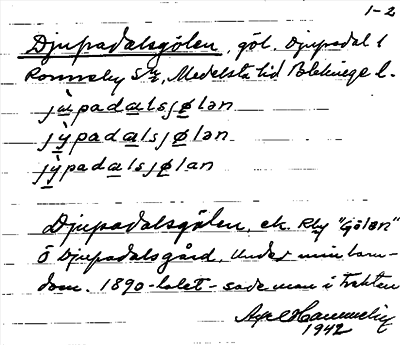 1-2
Djupadalsgölen, göl. Djupadal i
Ronneby sn, Medelsta hd Blekinge l.
jùpadalsjølan
jỳpadalsjølən
jỳpadalsjølan
Djupadalsgölen, ek. Rby "Gölen"
Ö Djupadalsgård. Under min barn-
dom. 1890-talet - sade man i trakten
Axel
1942